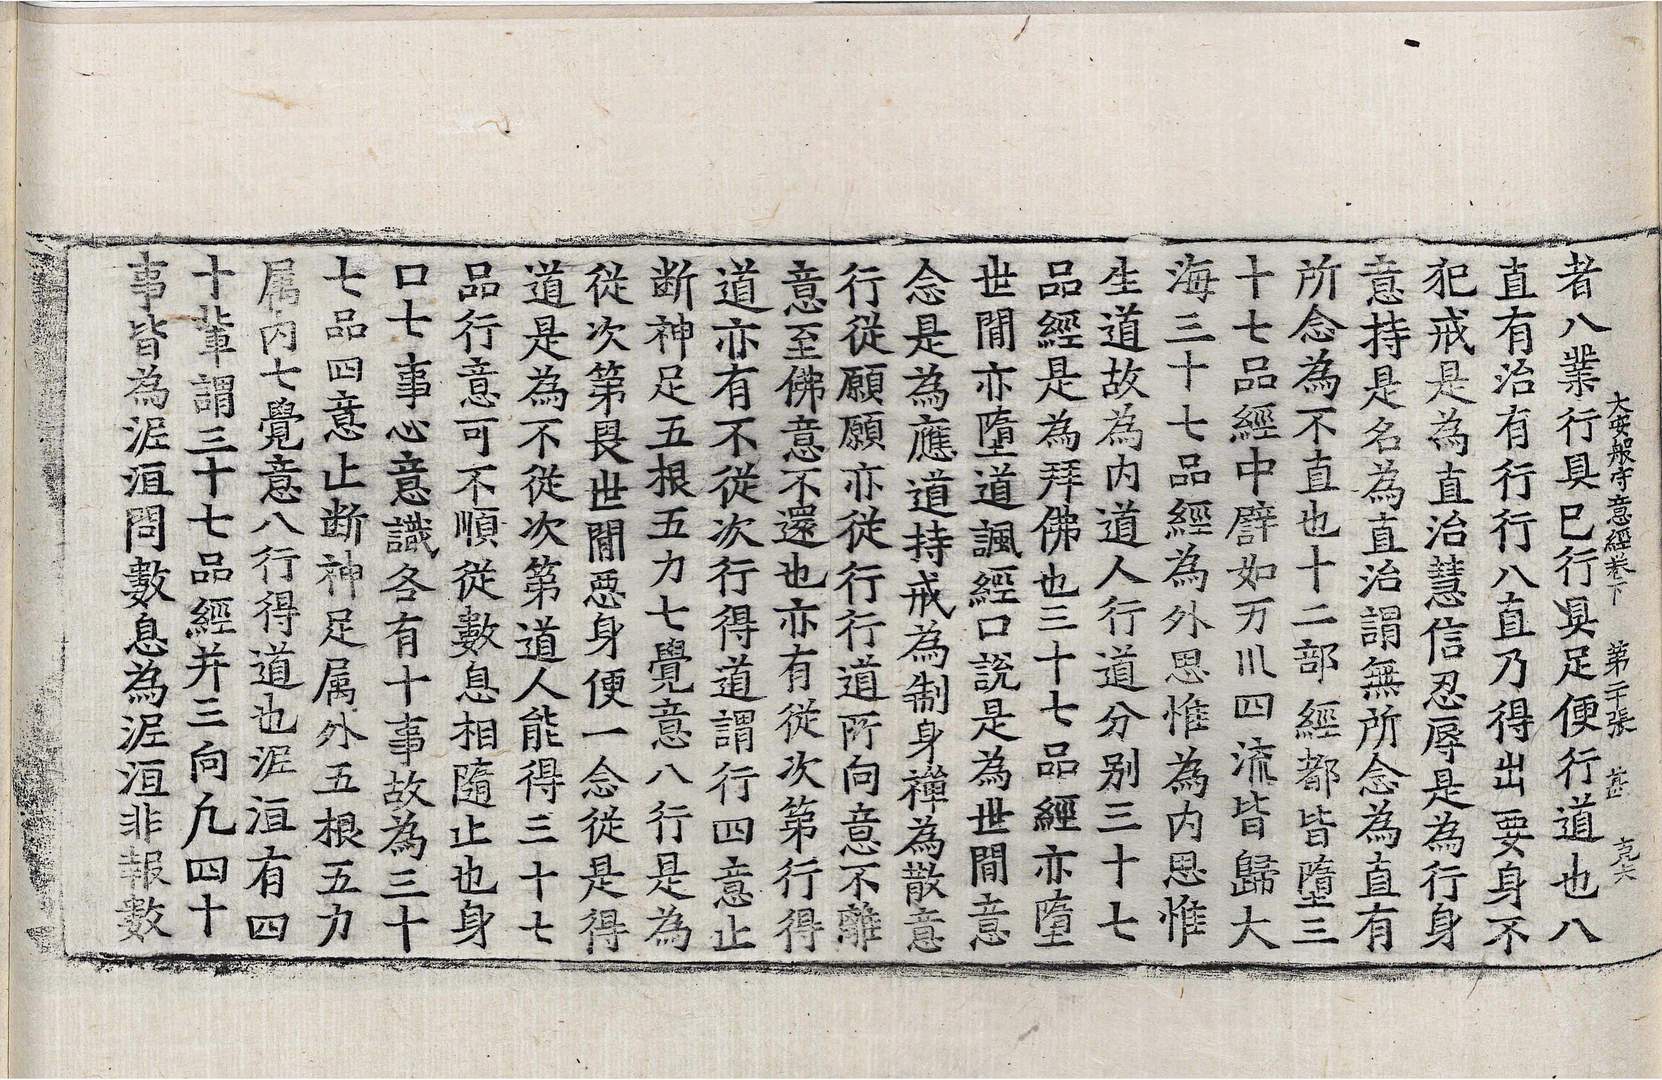 大安般守意經卷下　第二十張　甚
者八業行具已行具足便行道也八
直有治有行行八直乃得出要身不
犯戒是為直治慧信忍辱是為行身
意持是名為直治謂無所念為直有
所念為不直也十二部經都皆墮三
十七品經中譬如万川四流皆歸大
海三十七品經為外思惟為内思惟
生道故為内道人行道分别三十七
品經是為拜佛也三十七品經亦墮
世間亦墮道諷經口説是為世間意
念是為應道持戒為制身禪為散意
行從願願亦從行行道所向意不離
意至佛意不還也亦有從次第行得
道亦有不從次行得道謂行四意止
断神足五根五力七覺意八行是為
從次第畏世間惡身便一念從是得
道是為不從次第道人能得三十七
品行意可不順從數息相隨止也身
口七事心意識各有十事故為三十
七品四意止断神足属外五根五力
属内七覺意八行得道也泥洹有四
十輩謂三十七品經并三向凢四十
事皆為泥洹問數息為泥洹非報數